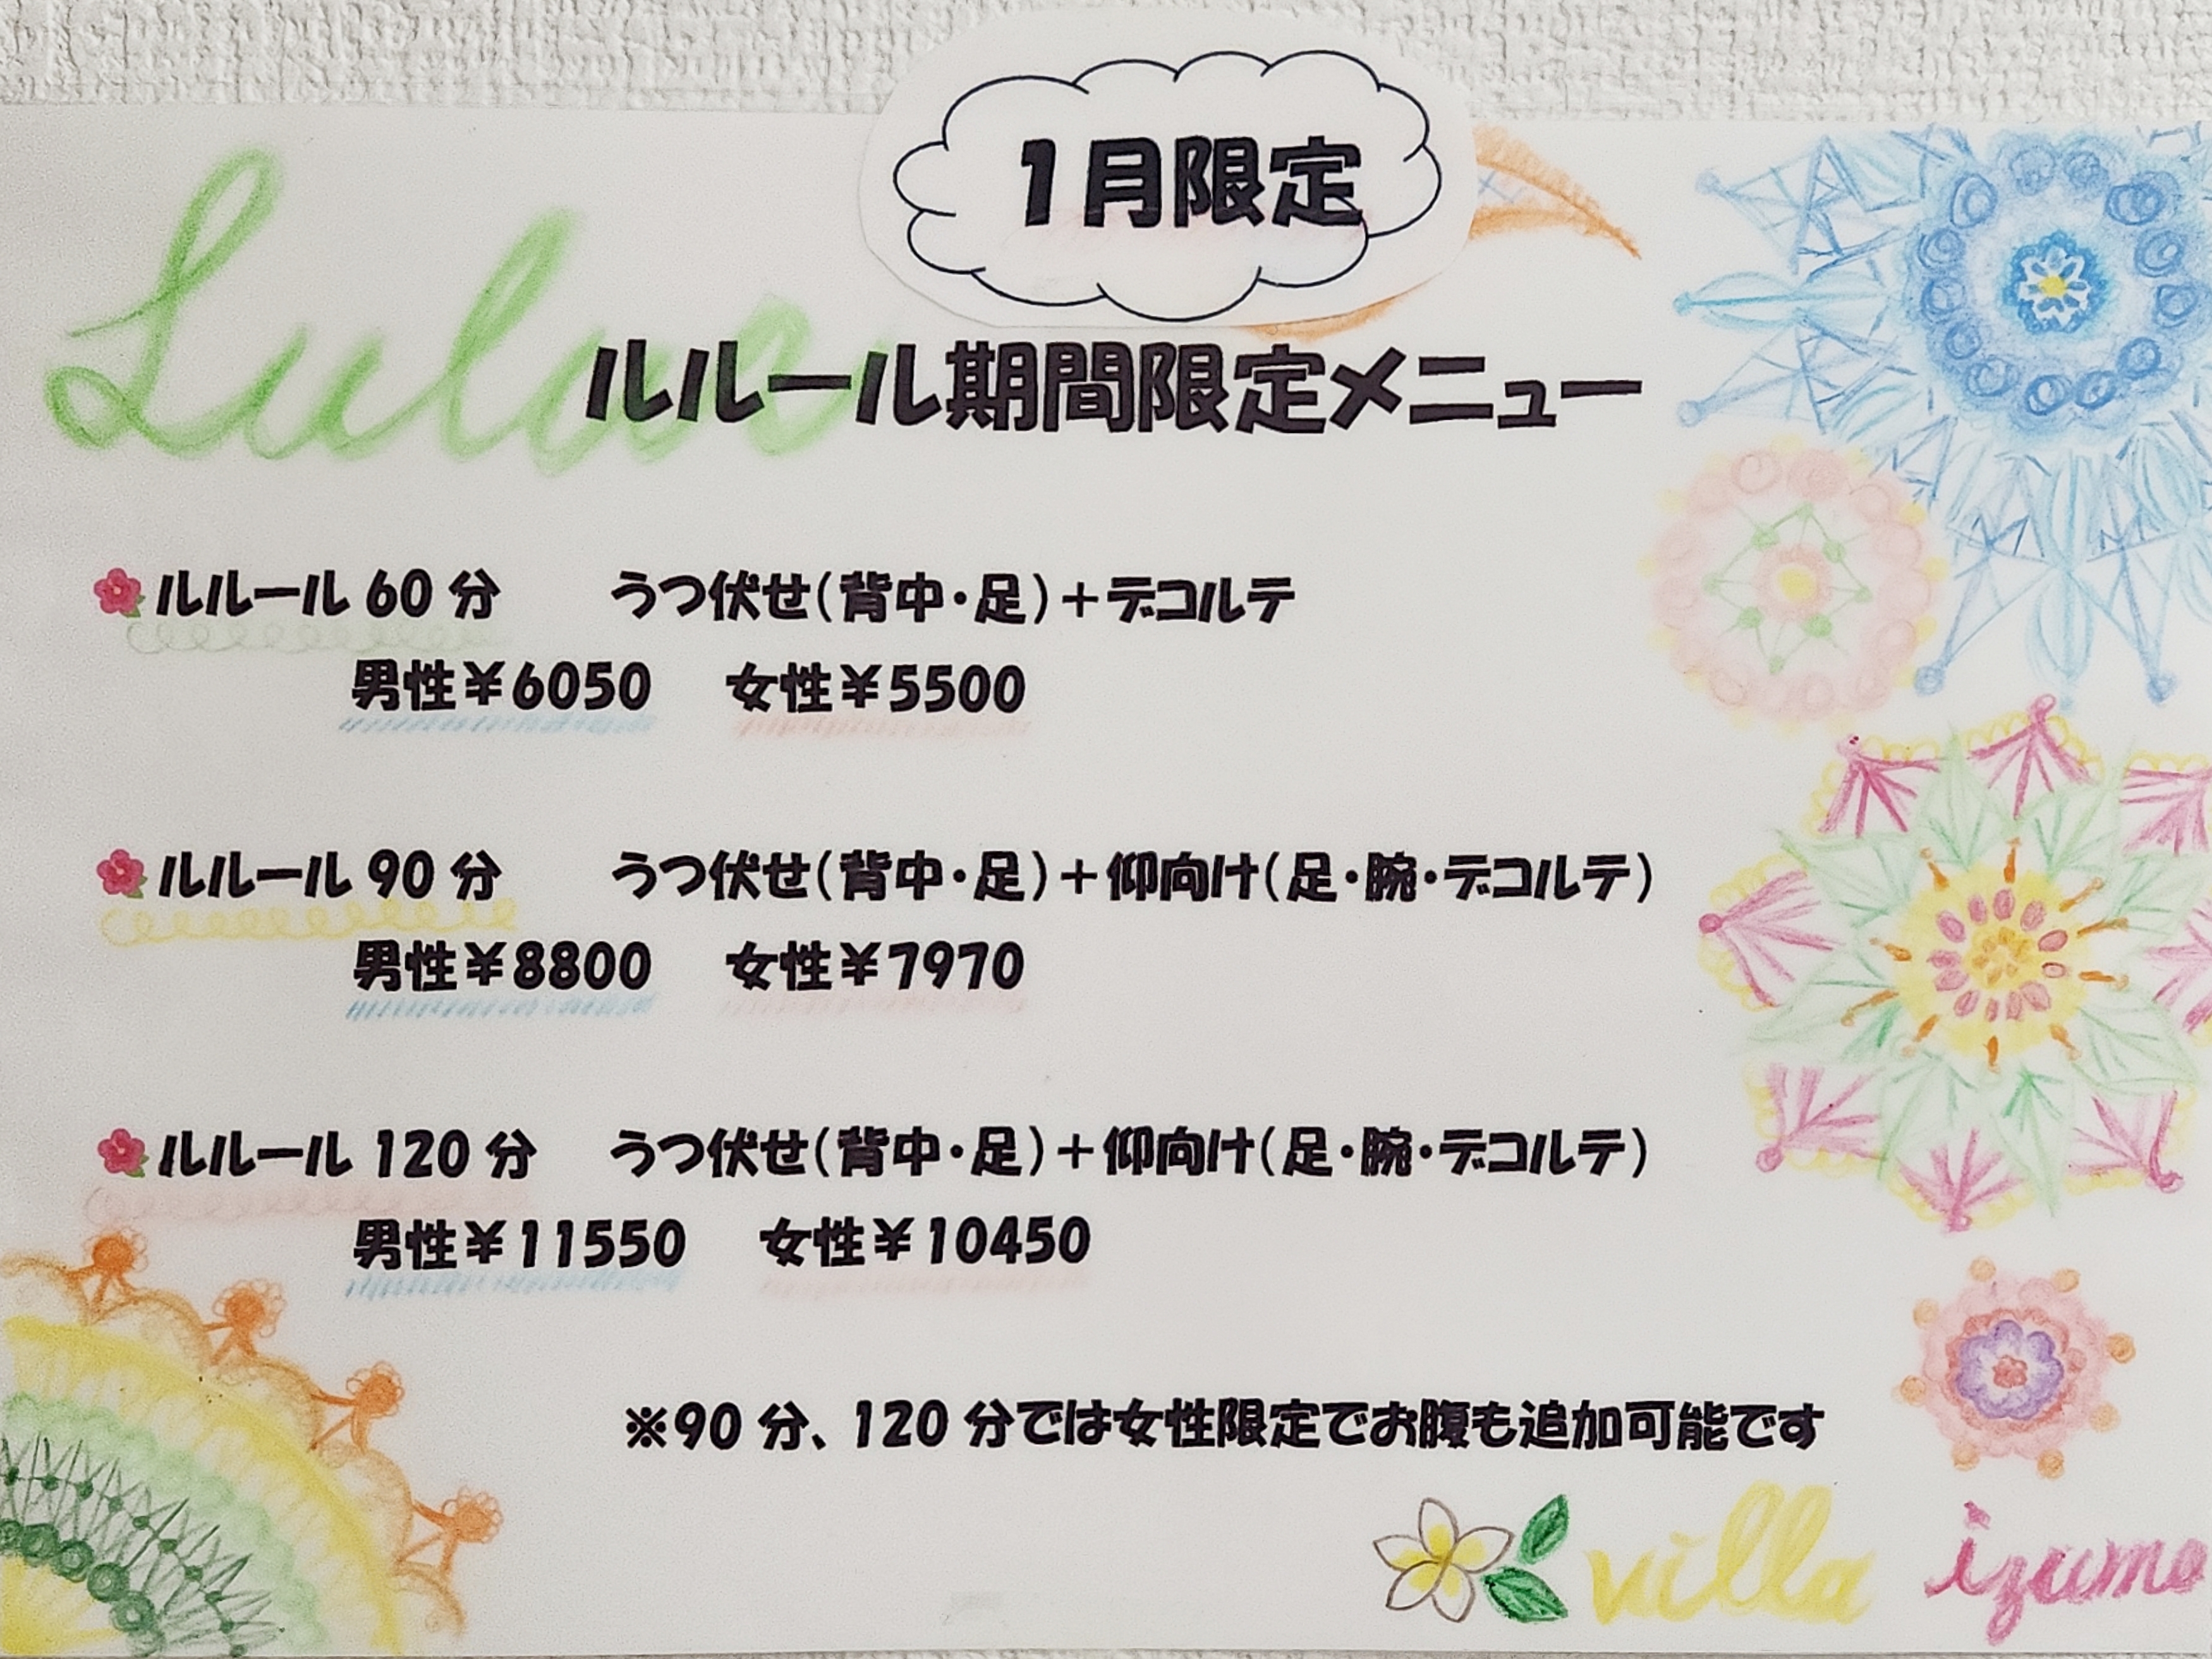 1月限定
ルルール期間限定メニュー
ルルール 60 分　うつ伏せ(背中・足)＋デコルテ
男性¥6050　女性¥5500
ルルール 90 分　うつ伏せ(背中・足)＋仰向け(足・腕・デコルテ)
男性¥8800　女性¥7970
ルルール 120 分　うつ伏せ(背中・足)＋仰向け(足・腕・デコルテ)
男性¥11550　女性¥10450
※90 分、120 分では女性限定でお腹も追加可能です
villa izumo